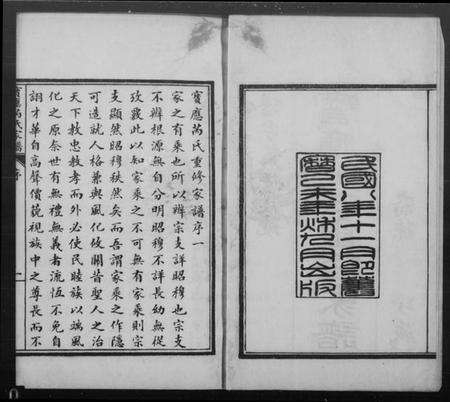 民國八年十一月即舊
曆己未年秋九月出版
寶應芮氏重修家譜序一
家之有乘也所以辨宗支詳昭穆也宗支
不辨根源無自分明昭穆不詳長幼無從
攷覈此以知家乘之不可無有家乘則宗
支顯然昭穆秩然矣而吾謂家乘之作隱
可造就人格兼與風化攸關昔聖人之治
天下教忠教孝而外必使民睦族以端風
化之原奈世有無禮無義者流恆不免自
詡才華自高聲價藐視族中之尊長而不
寶應芮氏家譜 序 一